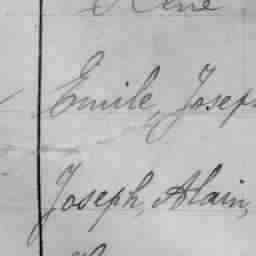 René
Emile, Joseph
Joseph, Alain,